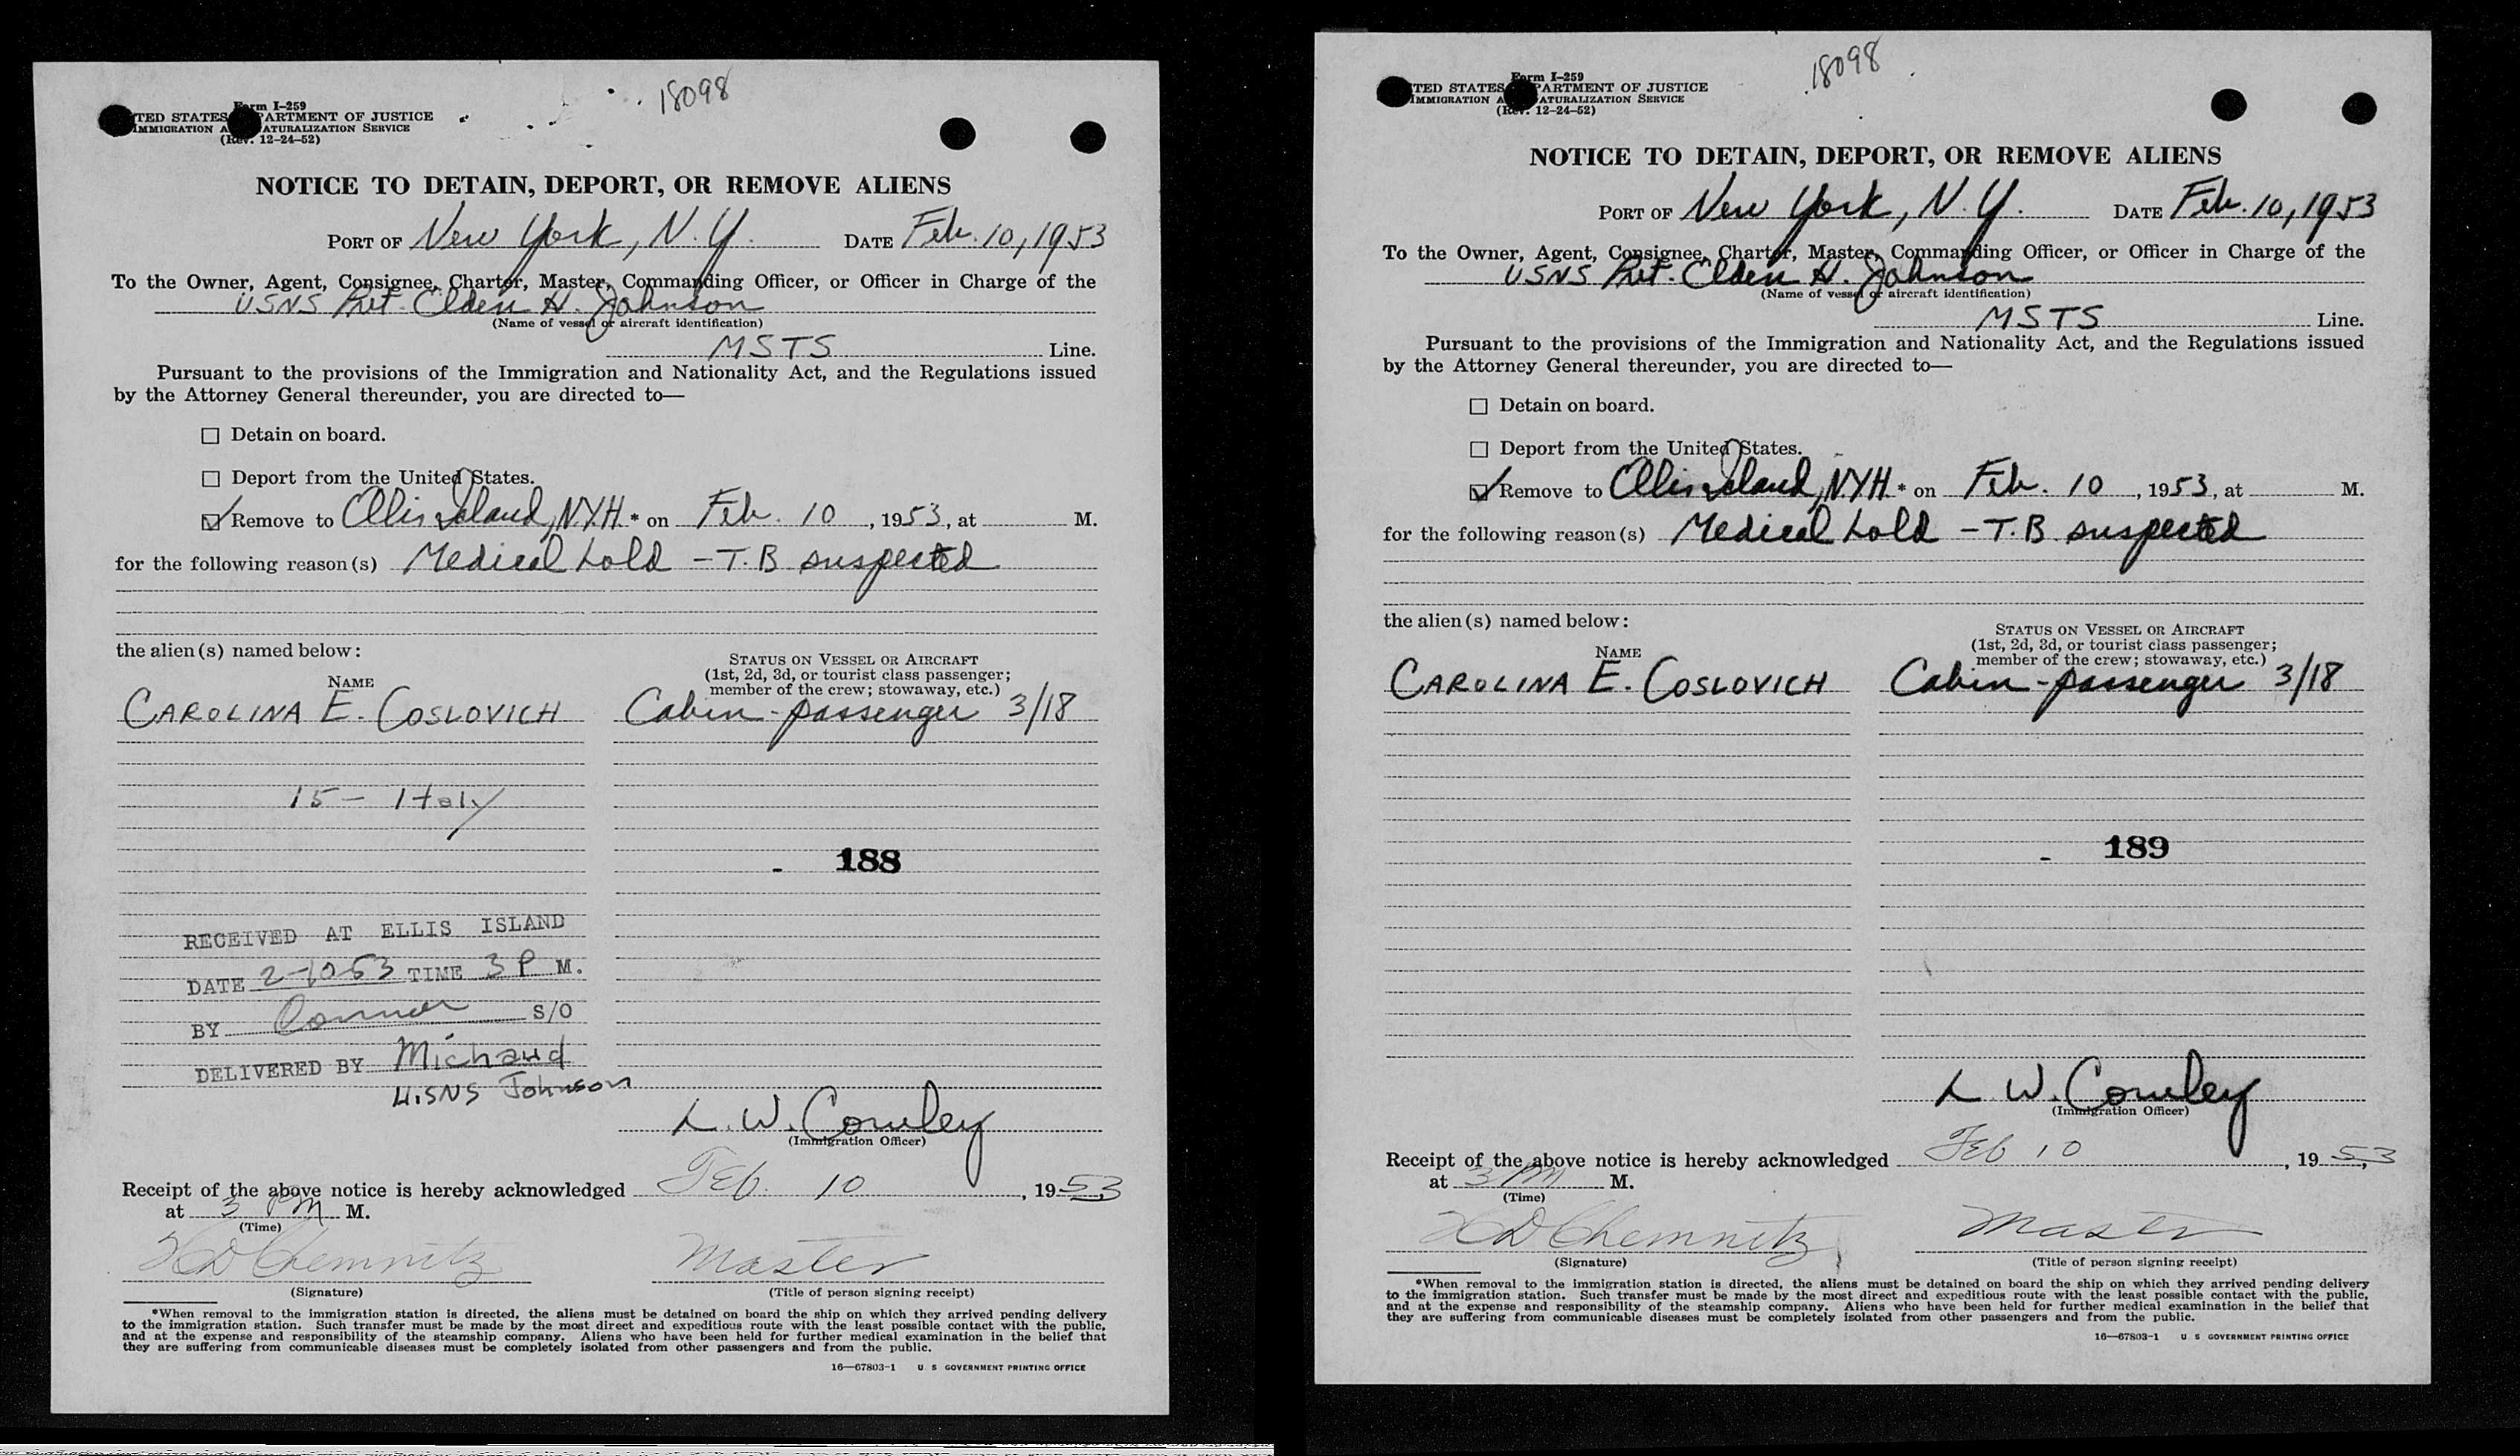 18098
Form I-259
TED STATES PARTMENT OF JUSTICE
IMMIGRATION A ATURALIZATION SERVICE
(Rev. 12-24-52)
NOTICE TO DETAIN, DEPORT, OR REMOVE ALIENS
PORT OF New York, N.Y. DATE Feb. 10, 1953
To the Owner, Agent, Consignee, Charter, Master, Commanding Officer, or Officer in Charge of the
USNS Pvt. Elden H. Johnson
(Name of vessel or aircraft identification)
MSTS Line.
Pursuant to the provisions of the Immigration and Nationality Act, and the Regulations issued
by the Attorney General thereunder, you are directed to—
☐ Detain on board.
☐ Deport from the United States.
☑ Remove to Ellis Island, N.Y.H.* on Feb. 10, 1953, at M.
for the following reason(s) Medical hold - T.B suspected
the alien(s) named below:
NAME
STATUS ON VESSEL OR AIRCRAFT
(1st, 2d, 3d, or tourist class passenger;
member of the crew; stowaway, etc.)
CAROLINA E. COSLOVICH Cabin-passenger 3/18
15- Italy
188
RECEIVED AT ELLIS ISLAND
DATE 2-10-53 TIME 3 P M.
BY Connor S/O
DELIVERED BY Michaud
U.SNS Johnson
L. W. Cowley
(Immigration Officer)
Receipt of the above notice is hereby acknowledged Feb. 10, 1953
at 3 PM M.
(Time)
HD Chemnitz Master
(Signature) (Title of person signing receipt)
*When removal to the immigration station is directed, the aliens must be detained on board the ship on which they arrived pending delivery
to the immigration station. Such transfer must be made by the most direct and expeditious route with the least possible contact with the public,
and at the expense and responsibility of the steamship company. Aliens who have been held for further medical examination in the belief that
they are suffering from communicable diseases must be completely isolated from other passengers and from the public.
16—67803-1 U S GOVERNMENT PRINTING OFFICE
18098
Form I-259
TED STATES PARTMENT OF JUSTICE
IMMIGRATION A ATURALIZATION SERVICE
(Rev. 12-24-52)
NOTICE TO DETAIN, DEPORT, OR REMOVE ALIENS
PORT OF New York, N.Y. DATE Feb. 10, 1953
To the Owner, Agent, Consignee, Charter, Master, Commanding Officer, or Officer in Charge of the
USNS Pvt. Elden H. Johnson
(Name of vessel or aircraft identification)
MSTS Line.
Pursuant to the provisions of the Immigration and Nationality Act, and the Regulations issued
by the Attorney General thereunder, you are directed to—
☐ Detain on board.
☐ Deport from the United States.
☑ Remove to Ellis Island, N.Y.H.* on Feb. 10, 1953, at M.
for the following reason(s) Medical hold - T.B suspected
the alien(s) named below:
NAME
STATUS ON VESSEL OR AIRCRAFT
(1st, 2d, 3d, or tourist class passenger;
member of the crew; stowaway, etc.)
CAROLINA E. COSLOVICH Cabin-passenger 3/18
189
L. W. Cowley
(Immigration Officer)
Receipt of the above notice is hereby acknowledged Feb 10, 1953
at 3 PM M.
(Time)
HD Chemnitz Master
(Signature) (Title of person signing receipt)
*When removal to the immigration station is directed, the aliens must be detained on board the ship on which they arrived pending delivery
to the immigration station. Such transfer must be made by the most direct and expeditious route with the least possible contact with the public,
and at the expense and responsibility of the steamship company. Aliens who have been held for further medical examination in the belief that
they are suffering from communicable diseases must be completely isolated from other passengers and from the public.
16—67803-1 U S GOVERNMENT PRINTING OFFICE